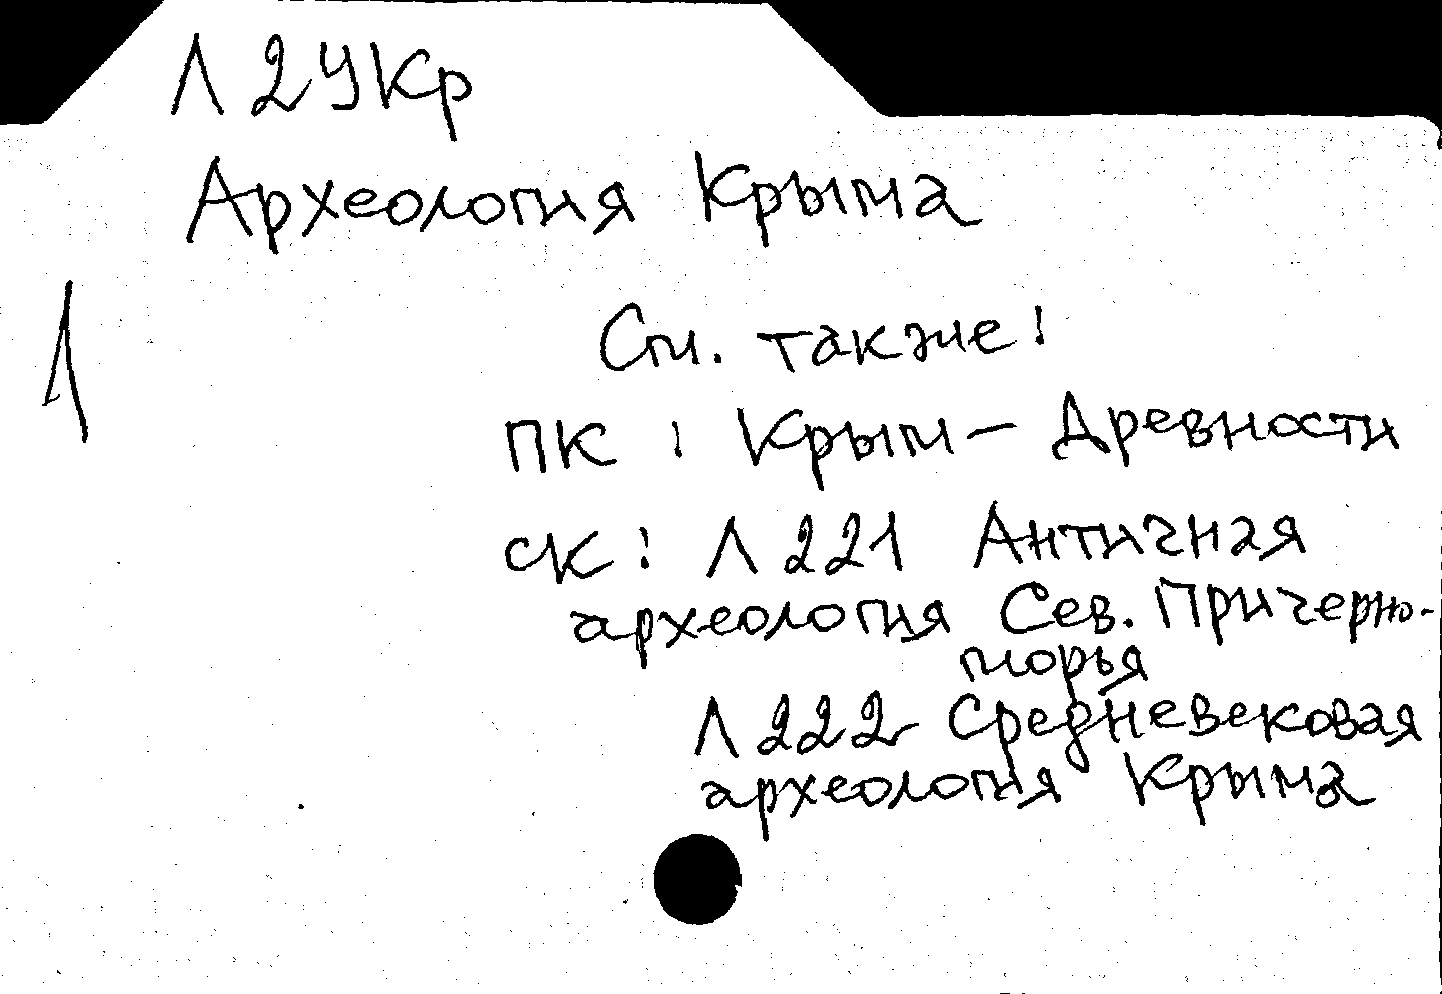 Л2Укр
Археология Крыма
1
См. также:
ПК: Крым — Древности
СК: Л221 Античная
археология Сев. Причерно-
морья
Л222 Средневековая
археология Крыма